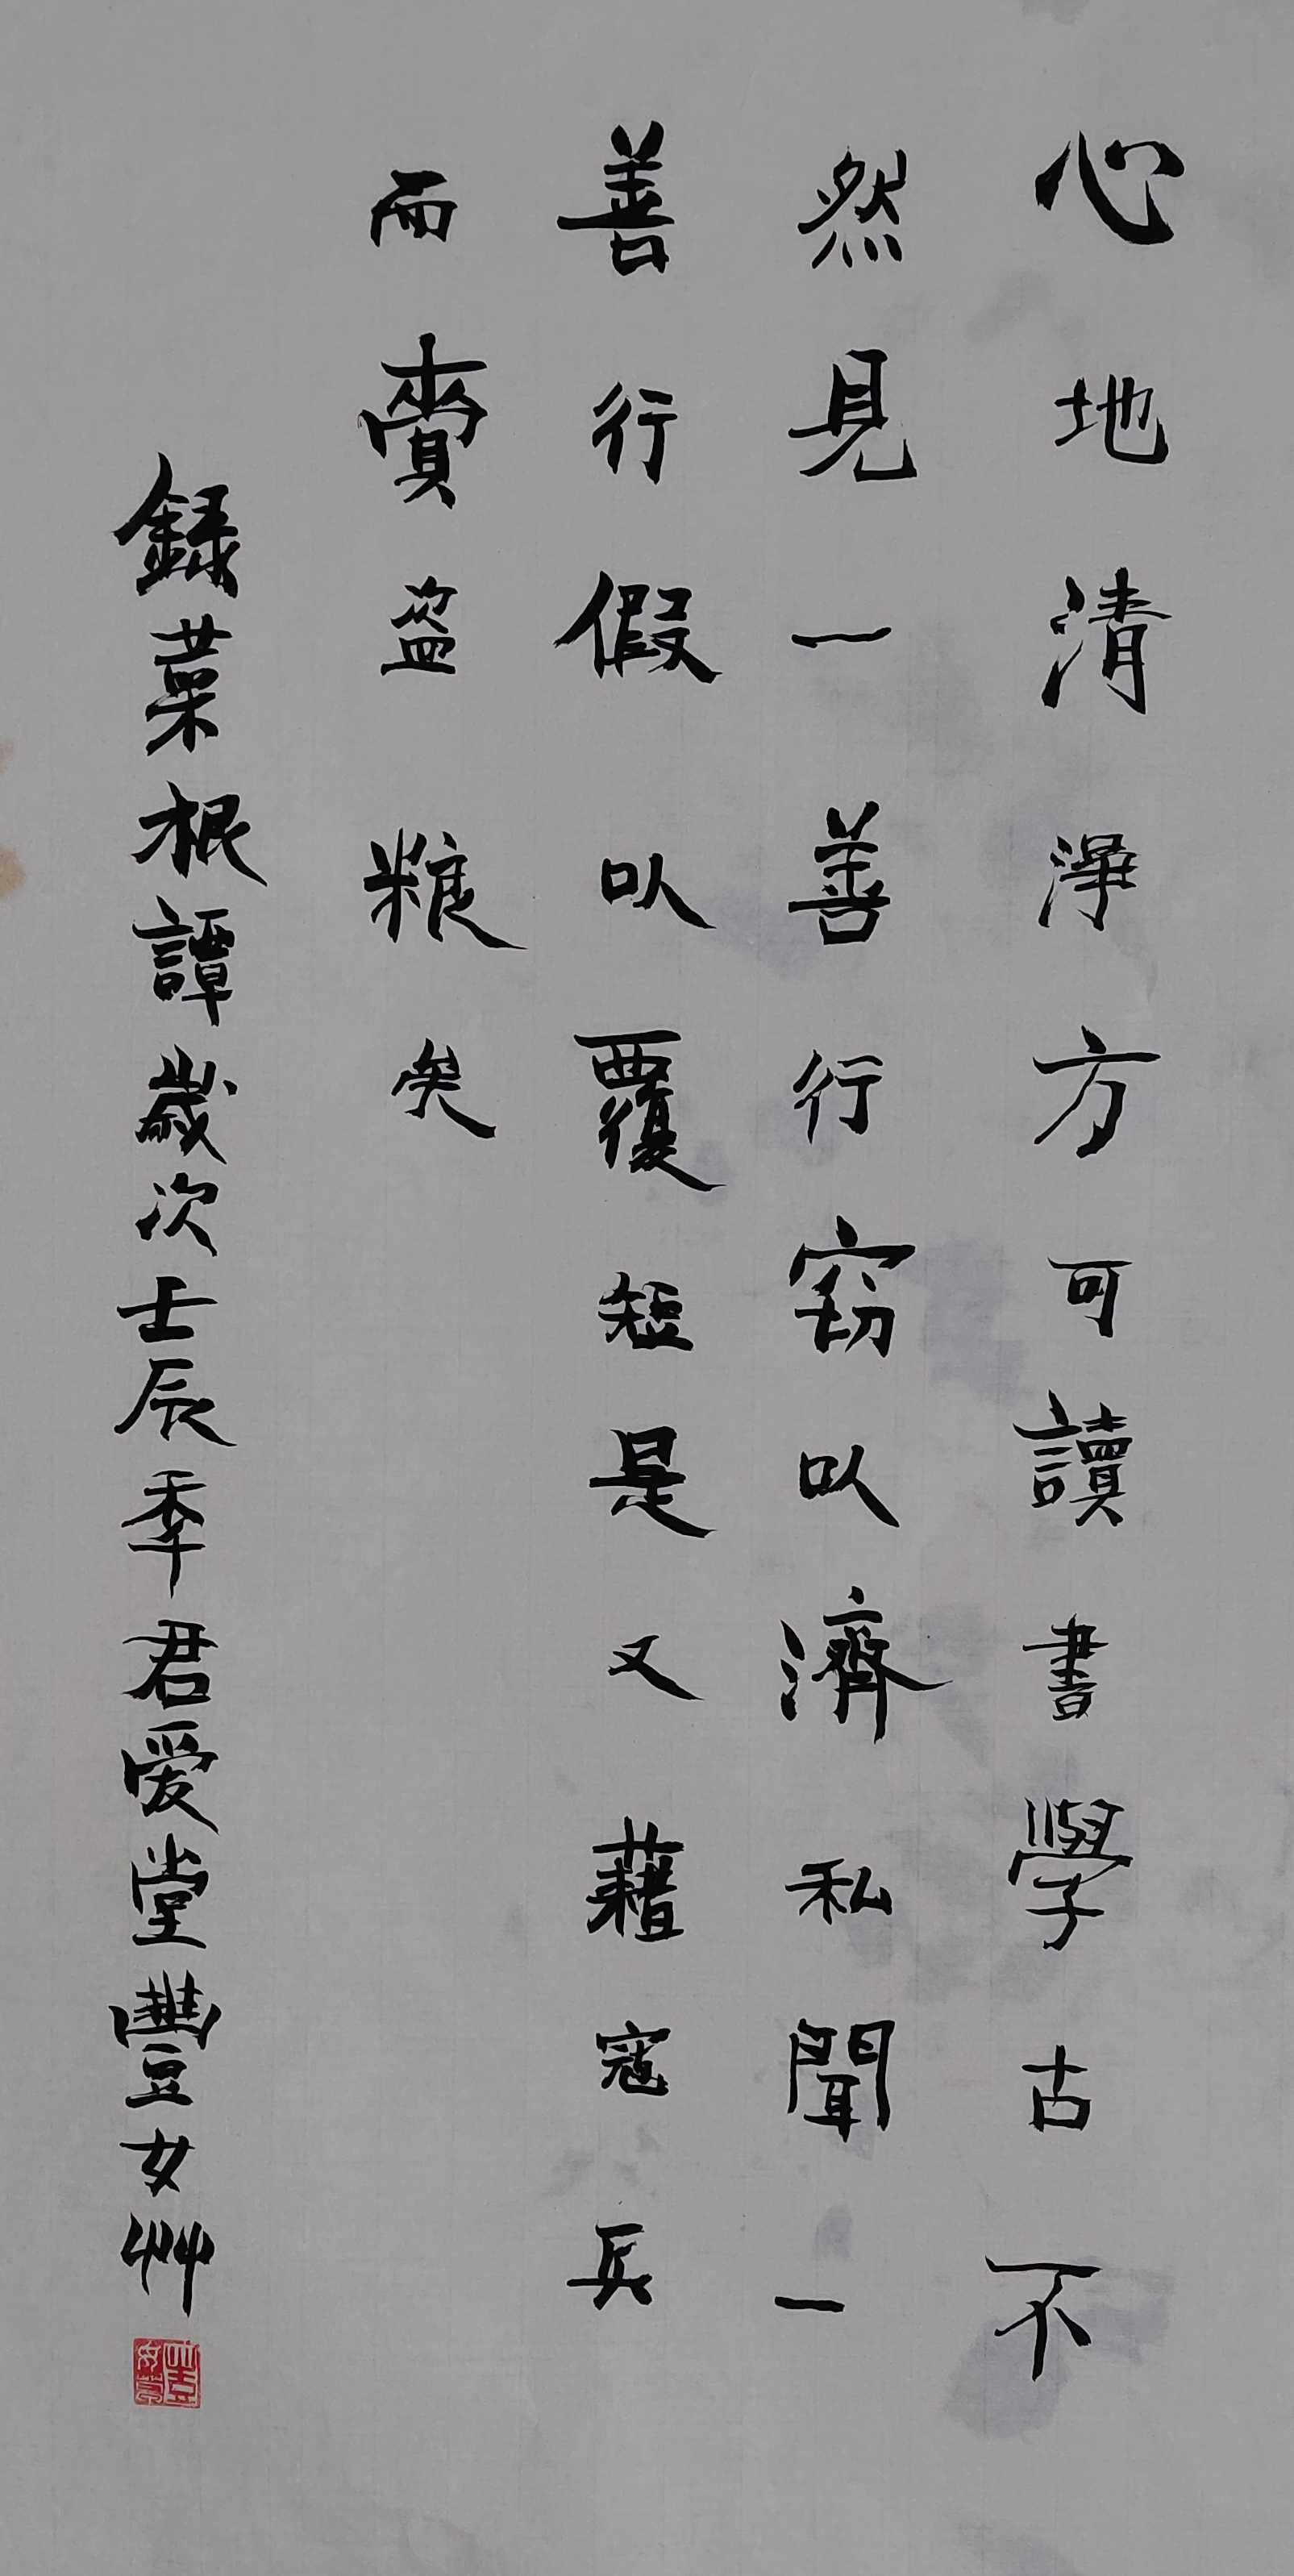 心地清淨方可讀書學古不
然見一善行竊以濟私聞一
善行假以覆短是又藉寇兵
而賫盜粮矣
錄菜根譚歲次壬辰季君爱堂豐女艸